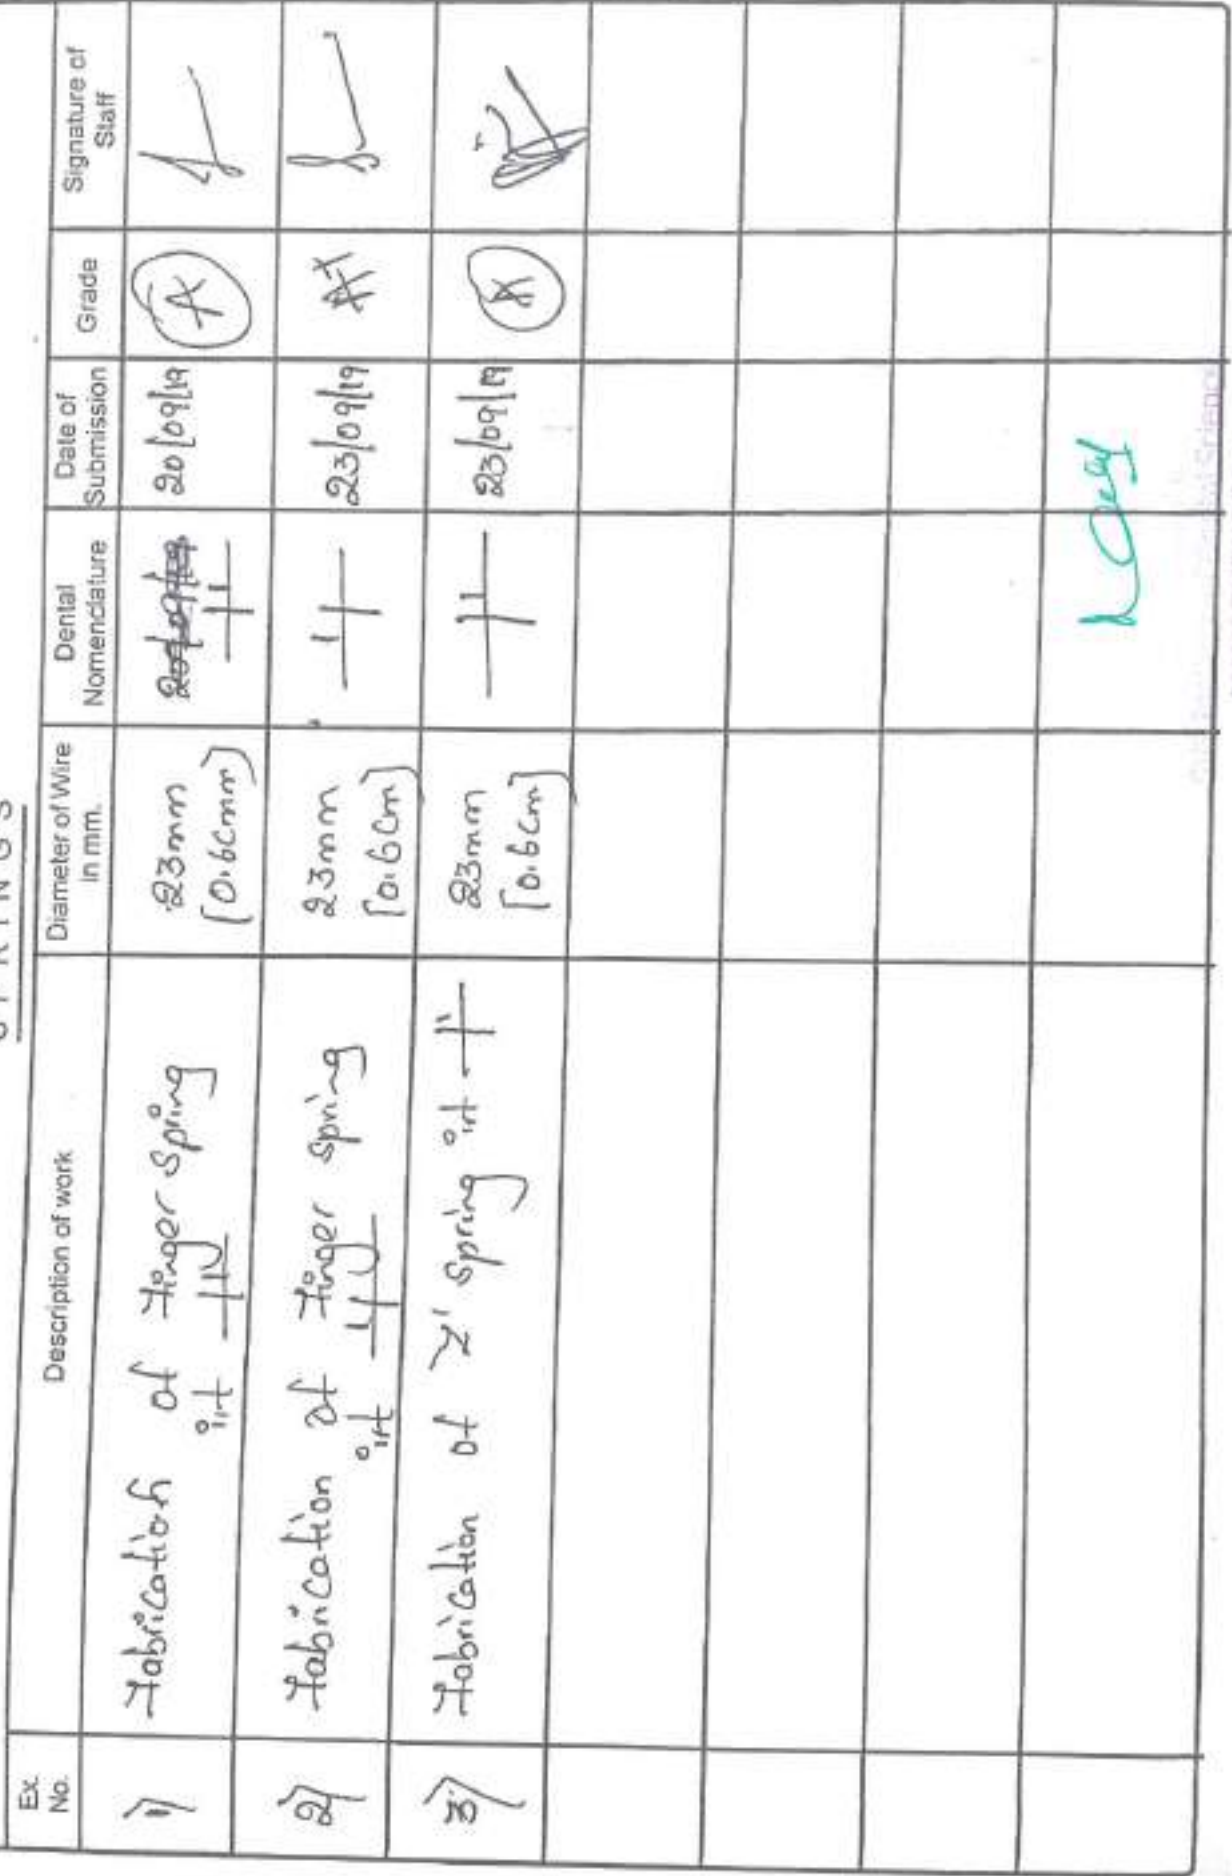 SPRINGS
Ex. No.
Description of work
Diameter of Wire in mm.
Dental Nomenclature
Date of Submission
Grade
Signature of Staff
1)
Fabrication of Finger spring
irt
23mm
[0.6cmm]
20/09/19
20/09/19
A
2)
Fabrication of Finger spring
irt
23mm
[0.6cm]
23/09/19
A+
3)
Fabrication of Z' spring irt
23mm
[0.6cm]
23/09/19
A